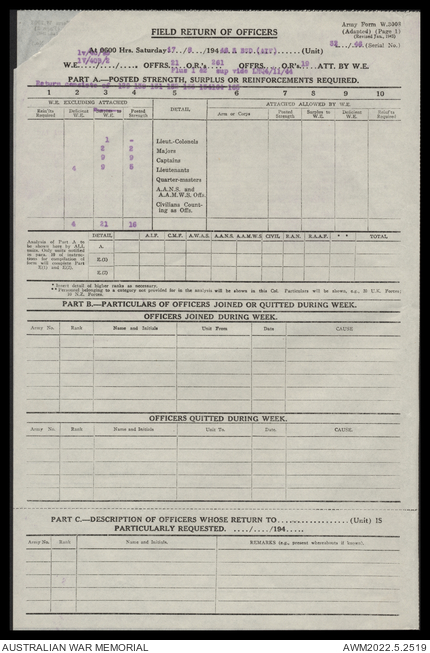 Army Form W.3008
(Adapted) (Page 1)
FIELD RETURN OF OFFICERS
At 0600 Hrs. Saturday 17/ /194 (Unit) (Serial No.)
W.E. OFFRS. 21 O.R's. 251 OFFRS. O.R's. ATT. BY W.E.
PART A.—POSTED STRENGTH, SURPLUS OR REINFORCEMENTS REQUIRED.
1 2 3 4 5 6 7 8 9 10
W.E. EXCLUDING ATTACHED DETAIL. ATTACHED ALLOWED BY W.E.
Rein'ts Required Deficient W.E. W.E. Posted Strength Arm or Corps Posted Strength Surplus to W.E. Deficient W.E. Rein'ts Required
1 - Lieut.-Colonels
2 2 Majors
9 9 Captains
4 9 5 Lieutenants
Quarter-masters
A.A.N.S. and A.A.M.W.S. Offs.
Civilians Counting as Offs.
21 16
Analysis of Part A to be shown here by ALL units.
DETAIL A.I.F. C.M.F. A.W.A.S. A.A.N.S. A.A.M.W.S. CIVIL R.A.N. R.A.A.F. * * TOTAL
A.
E.(1)
E.(2)
* Insert detail of higher ranks as necessary.
** Personnel belonging to a category not provided for in the analysis will be shown in this Col. Particulars will be shown, e.g., 20 U.K. Forces; 10 N.E. Forces.
PART B.—PARTICULARS OF OFFICERS JOINED OR QUITTED DURING WEEK.
OFFICERS JOINED DURING WEEK.
Army No. Rank Name and Initials Unit From Date CAUSE
OFFICERS QUITTED DURING WEEK.
Army No. Rank Name and Initials Unit To. Date CAUSE.
PART C.—DESCRIPTION OF OFFICERS WHOSE RETURN TO (Unit) IS
PARTICULARLY REQUESTED. ..../..../194.....
Army No. Rank Name and Initials. REMARKS (e.g., present whereabouts if known).
AUSTRALIAN WAR MEMORIAL AWM2022.5.2519